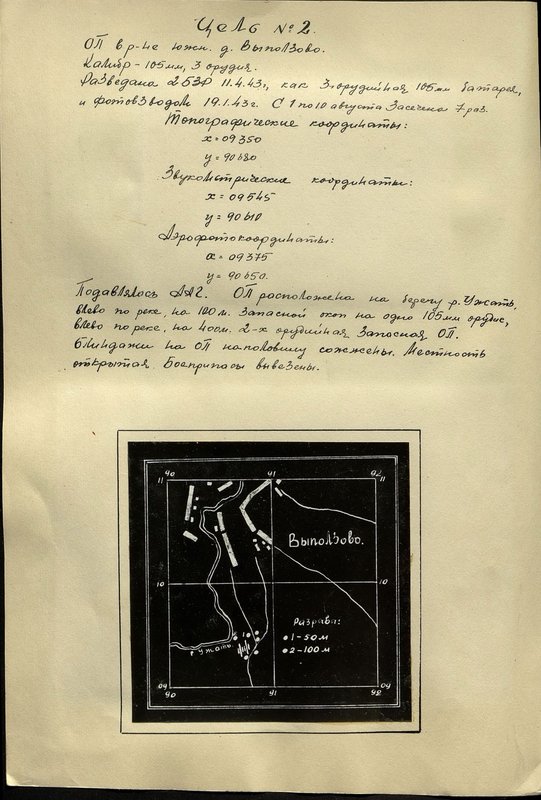 Цель № 2.
ОП в р-не южн. д. Выползово.
Калибр - 105 мм, 3 орудия.
Разведана 253Р 11.4.43г, как 3-орудийная 105 мм батарея,
и фотовзводом 19.1.43г. С 1 по 10 августа Засечена 7 раз.
Топографические координаты:
х = 09350
у = 90680
Звукометрические координаты:
х = 09545
у = 90610
Аэрофотокоординаты:
х = 09375
у = 90650.
Подавлялась ААГ. ОП расположена на берегу р. Ужать,
влево по реке, на 100 м. Запасной окоп на одно 105 мм орудие,
влево по реке, на 400 м. 2-х орудийная Запасная ОП.
Блиндажи на ОП наполовину сожжены. Местность
открытая. Боеприпасы вывезены.
90 91 92
11 11
Выползово.
10 10
Разрыва:
1-50 м
р. Ужать.
2-100 м
09 09
90 91 92